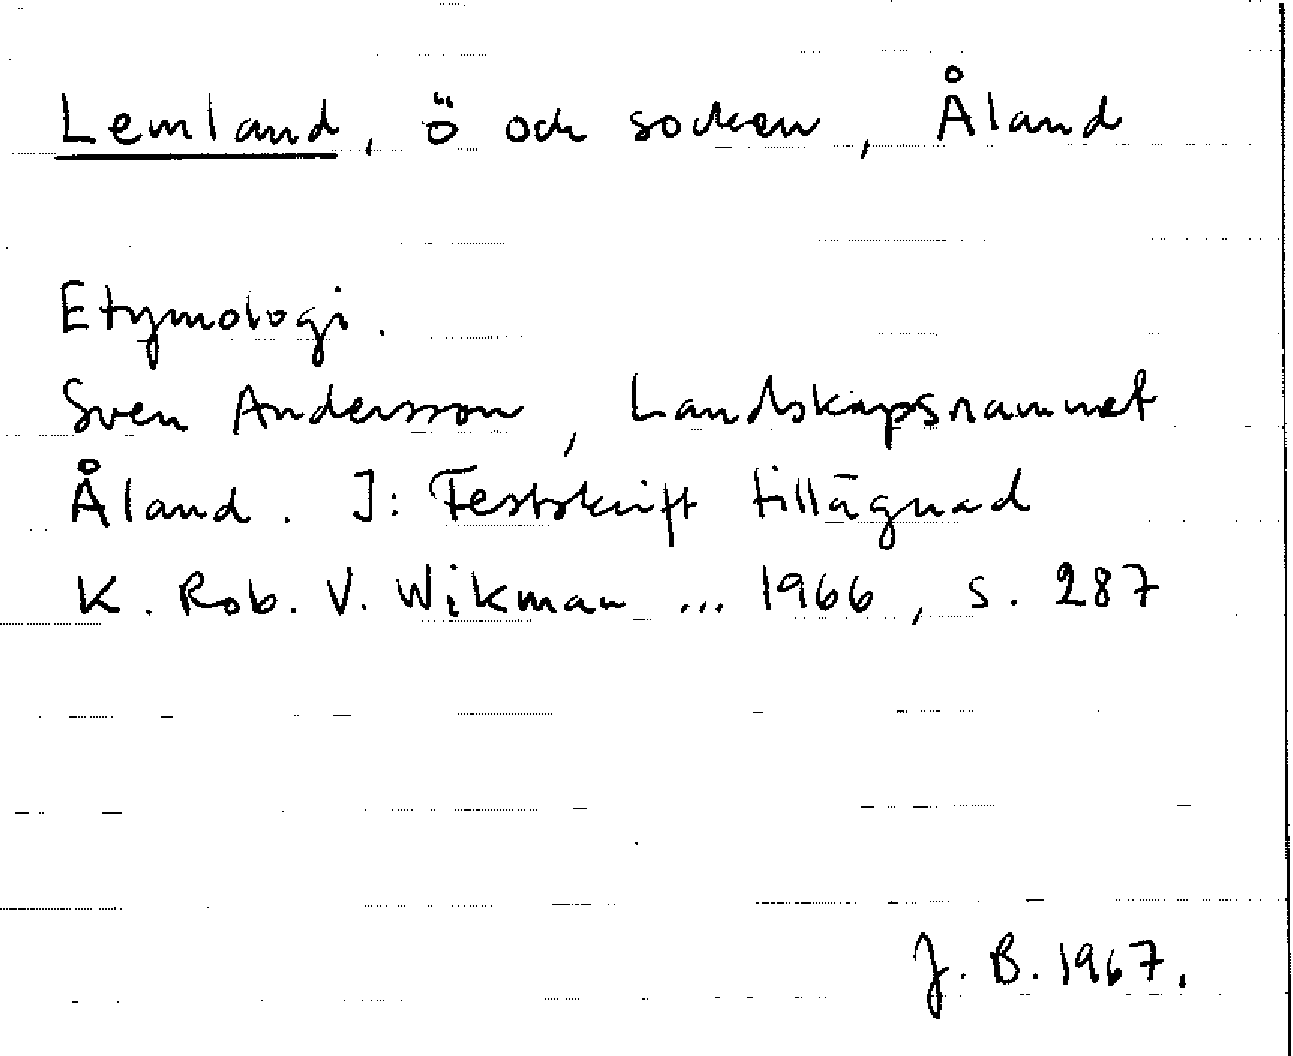 Lemland, ö och socken, Åland
Etymologi.
Sven Andersson, Landskapsnamnet
Åland. I: Festskrift tillägnad
K. Rob. V. Wikman ... 1966, s. 287
J. B. 1967.